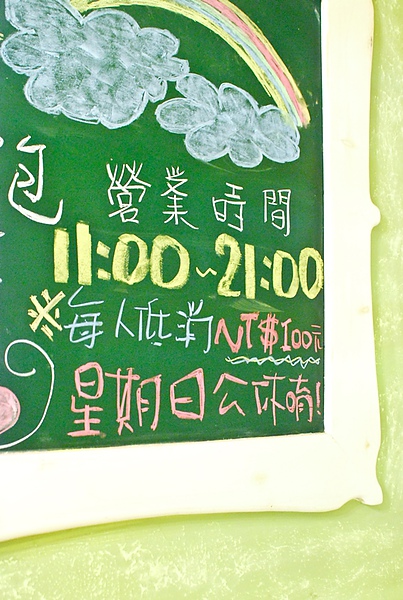 包
營業時間
11:00~21:00
※每人低消NT$100元
星期日公休唷!